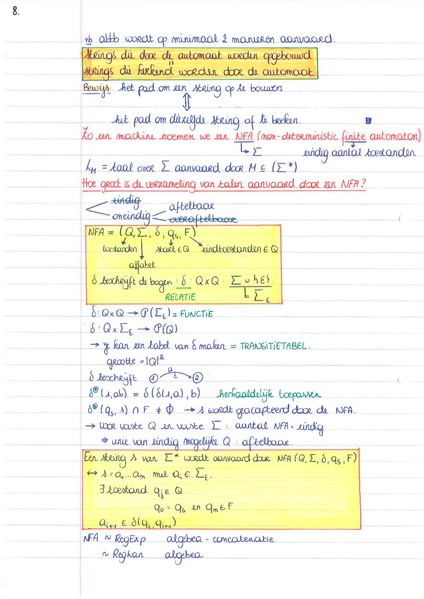 8.
vb abbb wordt op minimaal 2 manieren aanvaard.
strings die door de automaat worden opgebouwd
strings die herkend worden door de automaat
Bewijs het pad om een string op te bouwen
⇕
het pad om diezelfde string af te breken.
Zo een machine noemen we een NFA (non-deterministic finite automaton)
↳ Σ eindig aantal toestanden
L_M = taal over Σ aanvaard door M ⊆ (Σ*)
Hoe groot is de verzameling van talen aanvaard door een NFA?
eindig
oneindig aftelbaar
overaftelbaar
NFA = (Q, Σ, δ, q_s, F)
toestanden start ∈ Q eindtoestanden ∈ Q
alfabet
δ beschrijft de bogen: δ Q×Q · Σ ∪ {ε}
RELATIE ↳ Σ_ε
δ: Q×Q → P(Σ_ε) = FUNCTIE
δ: Q×Σ_ε → P(Q)
→ je kan een tabel van δ maken = TRANSITIETABEL.
grootte = |Q|²
δ beschrijft 1 a 2
δ*(1,ab) = δ(δ(1,a), b) herhaaldelijk toepassen
δ*(q_s, s) ∩ F ≠ ∅ → s wordt geaccepteerd door de NFA.
→ voor vaste Q en vaste Σ: aantal NFA = eindig
⇒ unie van eindig mogelijke Q: aftelbaar.
Een string s van Σ* wordt aanvaard door NFA (Q, Σ, δ, q_s, F)
↔ s = a₁...a_m met a_i ∈ Σ_ε.
∃ toestand q_i ∈ Q
q₀ = q_s en q_m ∈ F
a_{i+1} ∈ δ(q_i, q_{i+1})
NFA ~ RegExp algebra - concatenatie
~ RegLan algebra